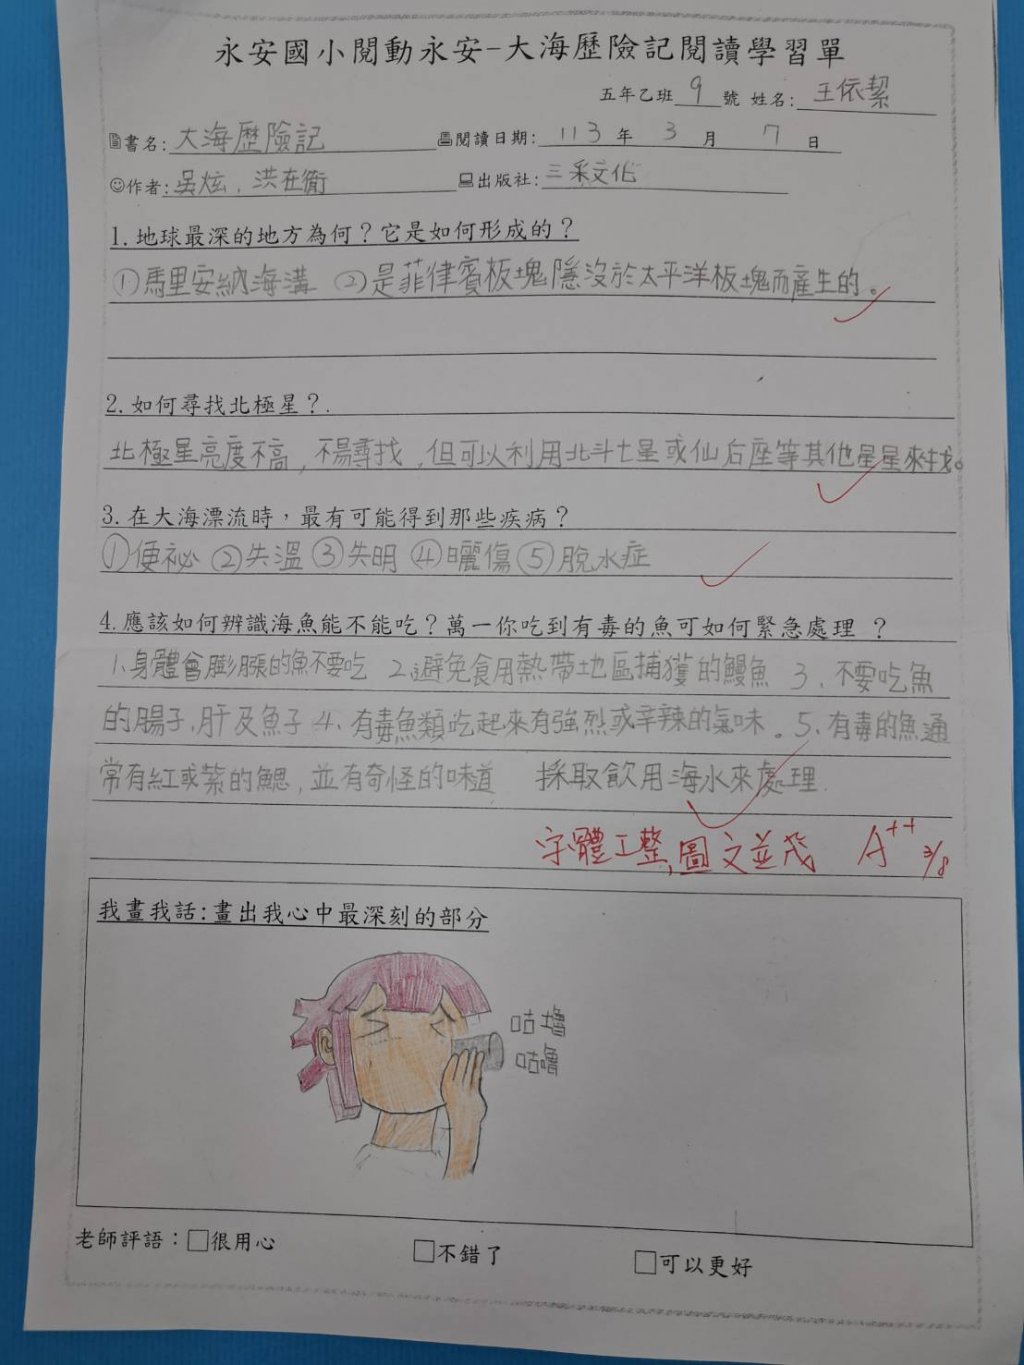 永安國小閱動永安-大海歷險記閱讀學習單
五年乙班 9 號 姓名: 王依潔
書名: 大海歷險記 閱讀日期: 113 年 3 月 7 日
作者: 吳炫, 洪在衛 出版社: 三采文化
1. 地球最深的地方為何？它是如何形成的？
①馬里安納海溝 ②是菲律賓板塊隱沒於太平洋板塊而產生的。
2. 如何尋找北極星？.
北極星亮度不高, 不易尋找, 但可以利用北斗七星或仙后座等其他星星來找。
3. 在大海漂流時，最有可能得到那些疾病？
①便祕 ②失溫 ③失明 ④曬傷 ⑤脫水症
4. 應該如何辨識海魚能不能吃？萬一你吃到有毒的魚可如何緊急處理 ？
1、身體會膨脹的魚不要吃 2、避免食用熱帶地區捕獲的鰻魚 3、不要吃魚
的腸子、肝及魚子 4、有毒魚類吃起來有強烈或辛辣的氣味。5、有毒的魚通
常有紅或紫的鰓, 並有奇怪的味道 採取飲用海水來處理.
字體工整,圖文並茂 A++ 3/8
我畫我話:畫出我心中最深刻的部分
咕嚕
咕嚕
老師評語：□很用心 □不錯了 □可以更好